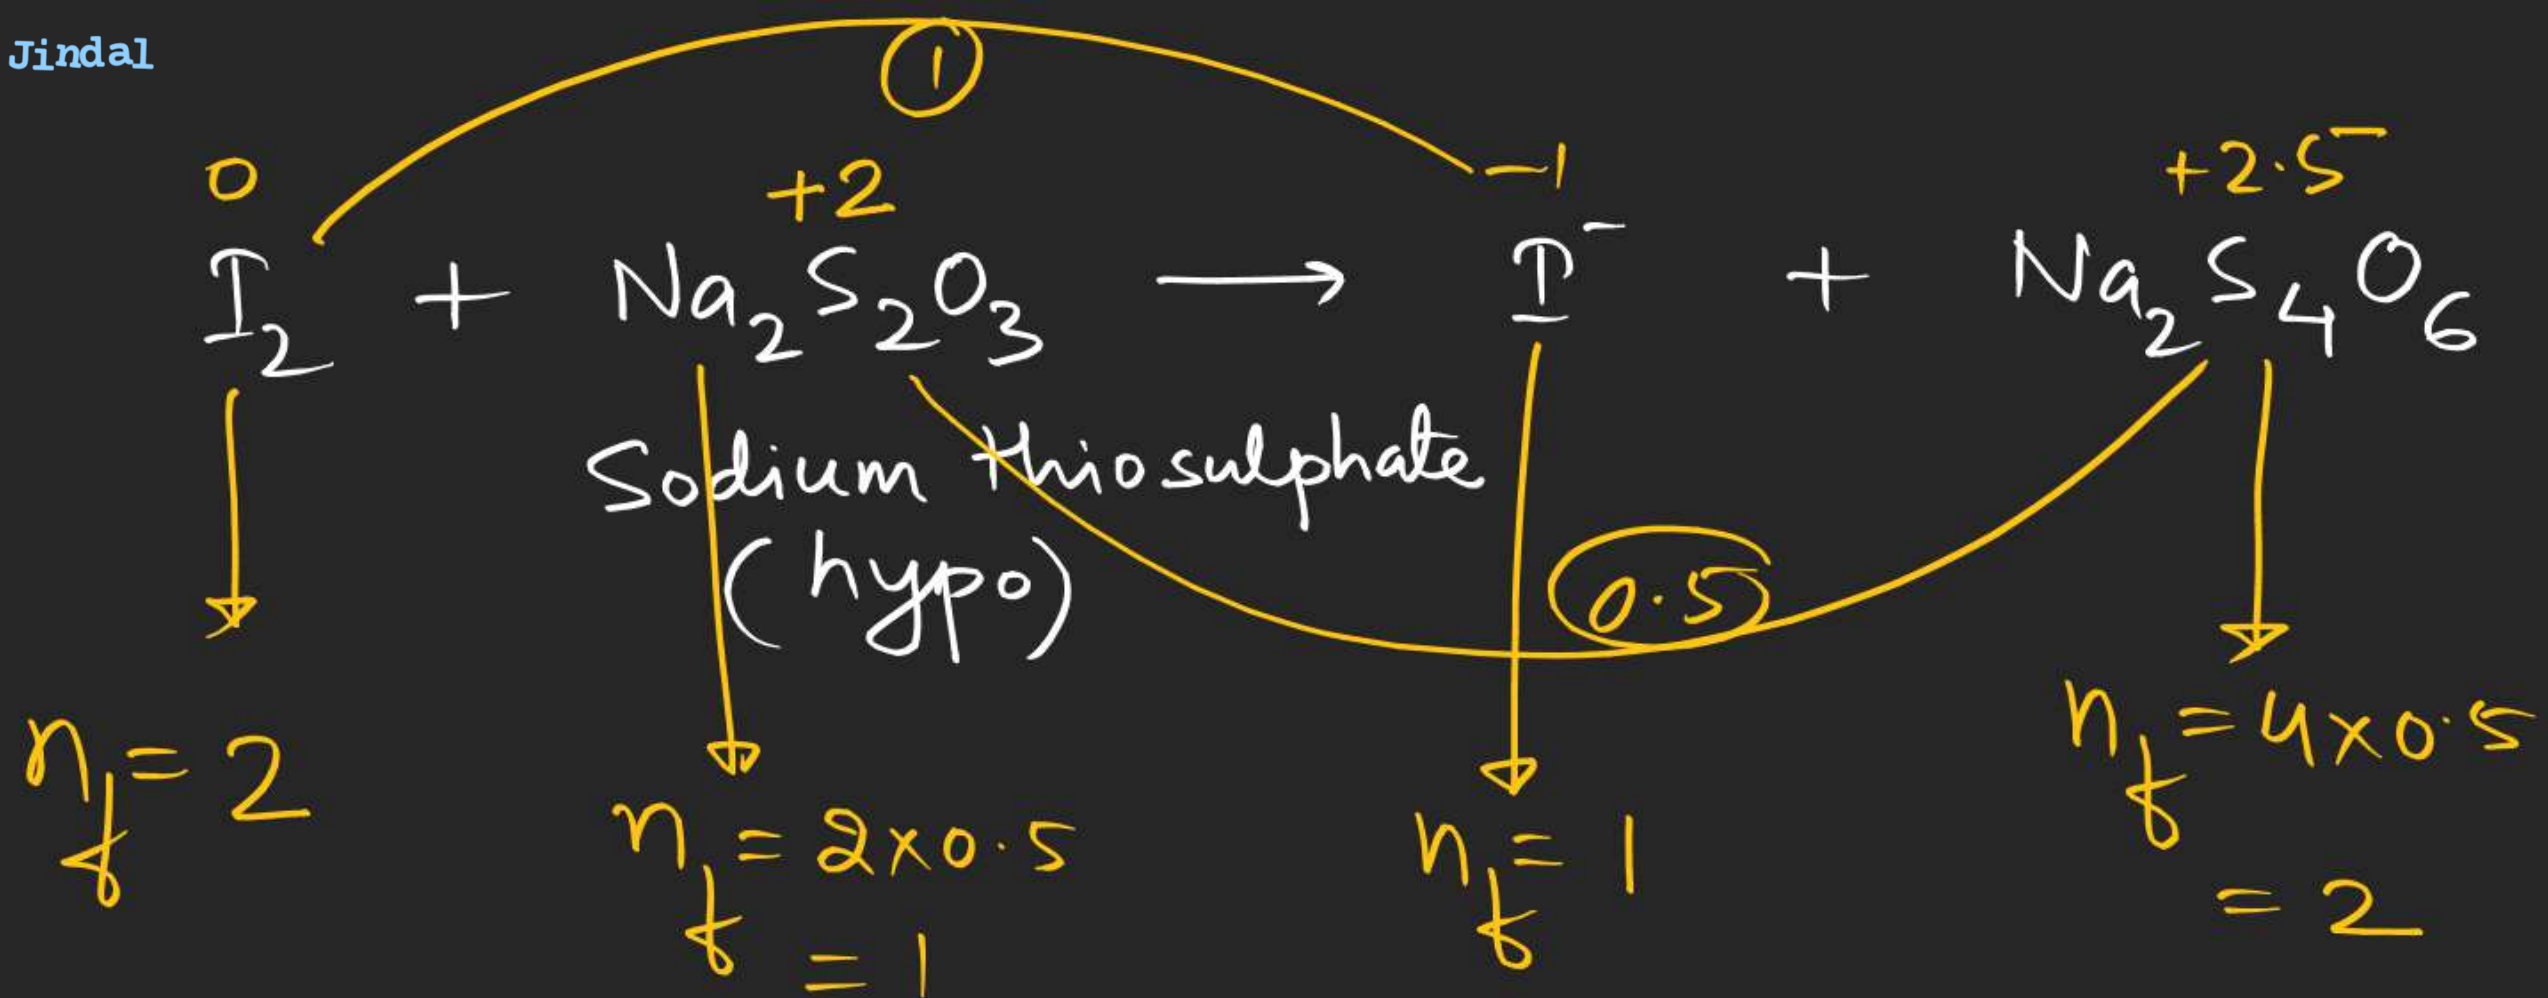 Jindal
①
0 +2 -1 +2.5
I₂ + Na₂S₂O₃ ⟶ I⁻ + Na₂S₄O₆
Sodium thiosulphate
(hypo)
0.5
n_f = 2
n_f = 2×0.5
= 1
n_f = 1
n_f = 4×0.5
= 2